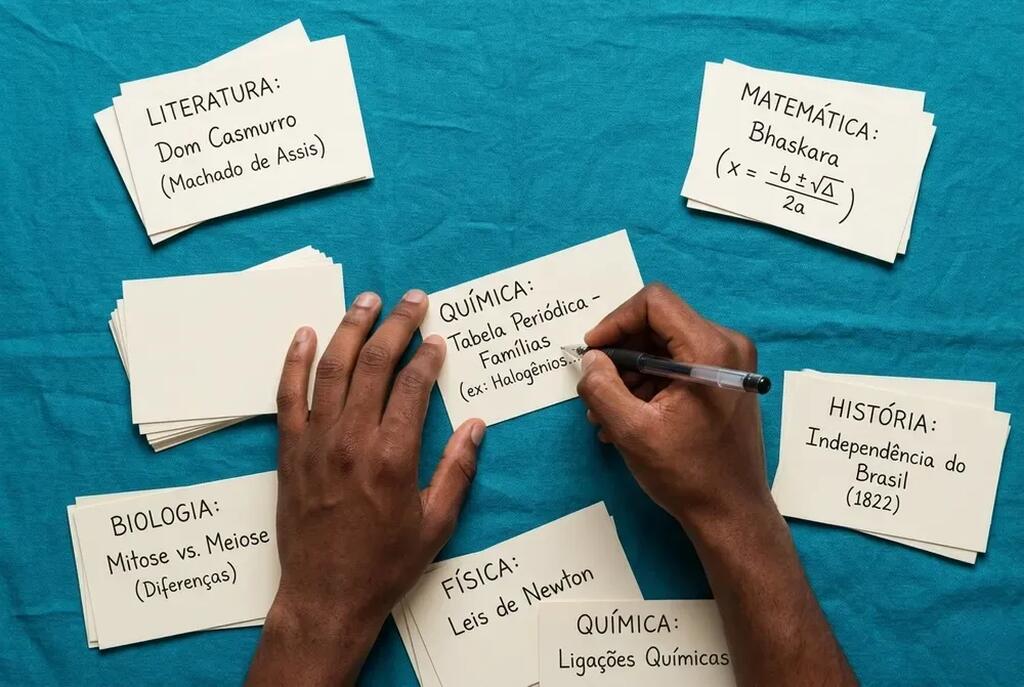 LITERATURA:
Dom Casmurro
(Machado de Assis)
MATEMÁTICA:
Bhaskara
(x = -b ± √Δ / 2a)
QUÍMICA:
Tabela Periódica -
Famílias
(ex: Halogênios...
HISTÓRIA:
Independência do
Brasil
(1822)
BIOLOGIA:
Mitose vs. Meiose
(Diferenças)
FÍSICA:
Leis de Newton
QUÍMICA:
Ligações Químicas